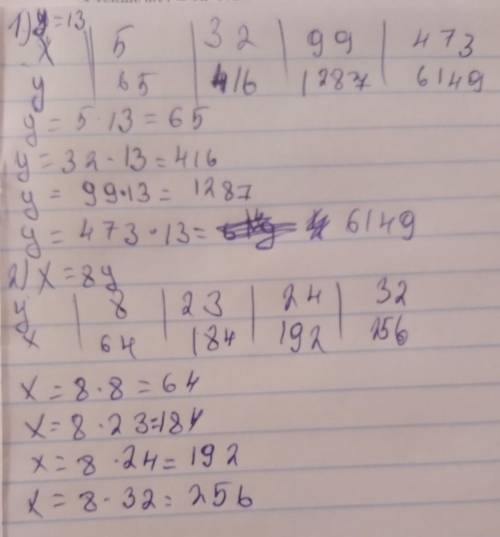 1) y=13
x | 5 | 32 | 99 | 473
y | 65 | 416 | 1287 | 6149
y = 5·13 = 65
y = 32·13 = 416
y = 99·13 = 1287
y = 473·13 = 6149
2) x = 8y
y | 8 | 23 | 24 | 32
x | 64 | 184 | 192 | 256
x = 8·8 = 64
x = 8·23=184
x = 8·24 = 192
x = 8·32 = 256